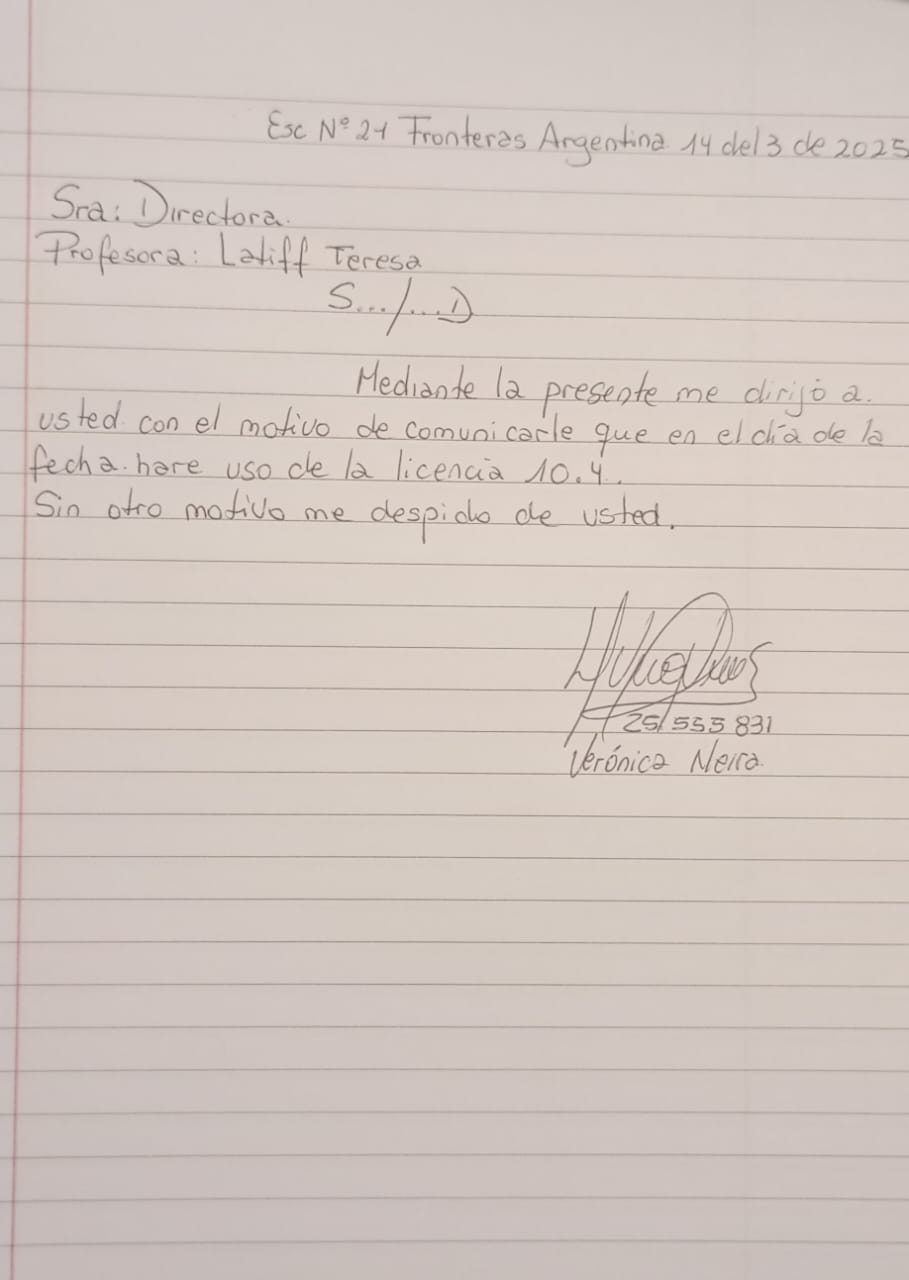 Esc Nº 21 Fronteras Argentina 14 del 3 de 2025
Sra: Directora.
Profesora: Latiff Teresa
S.../...D
Mediante la presente me dirijo a.
usted con el motivo de comunicarle que en el día de la
fecha. hare uso de la licencia 10.4.
Sin otro motivo me despido de usted.
25/555 831
Verónica Neira.